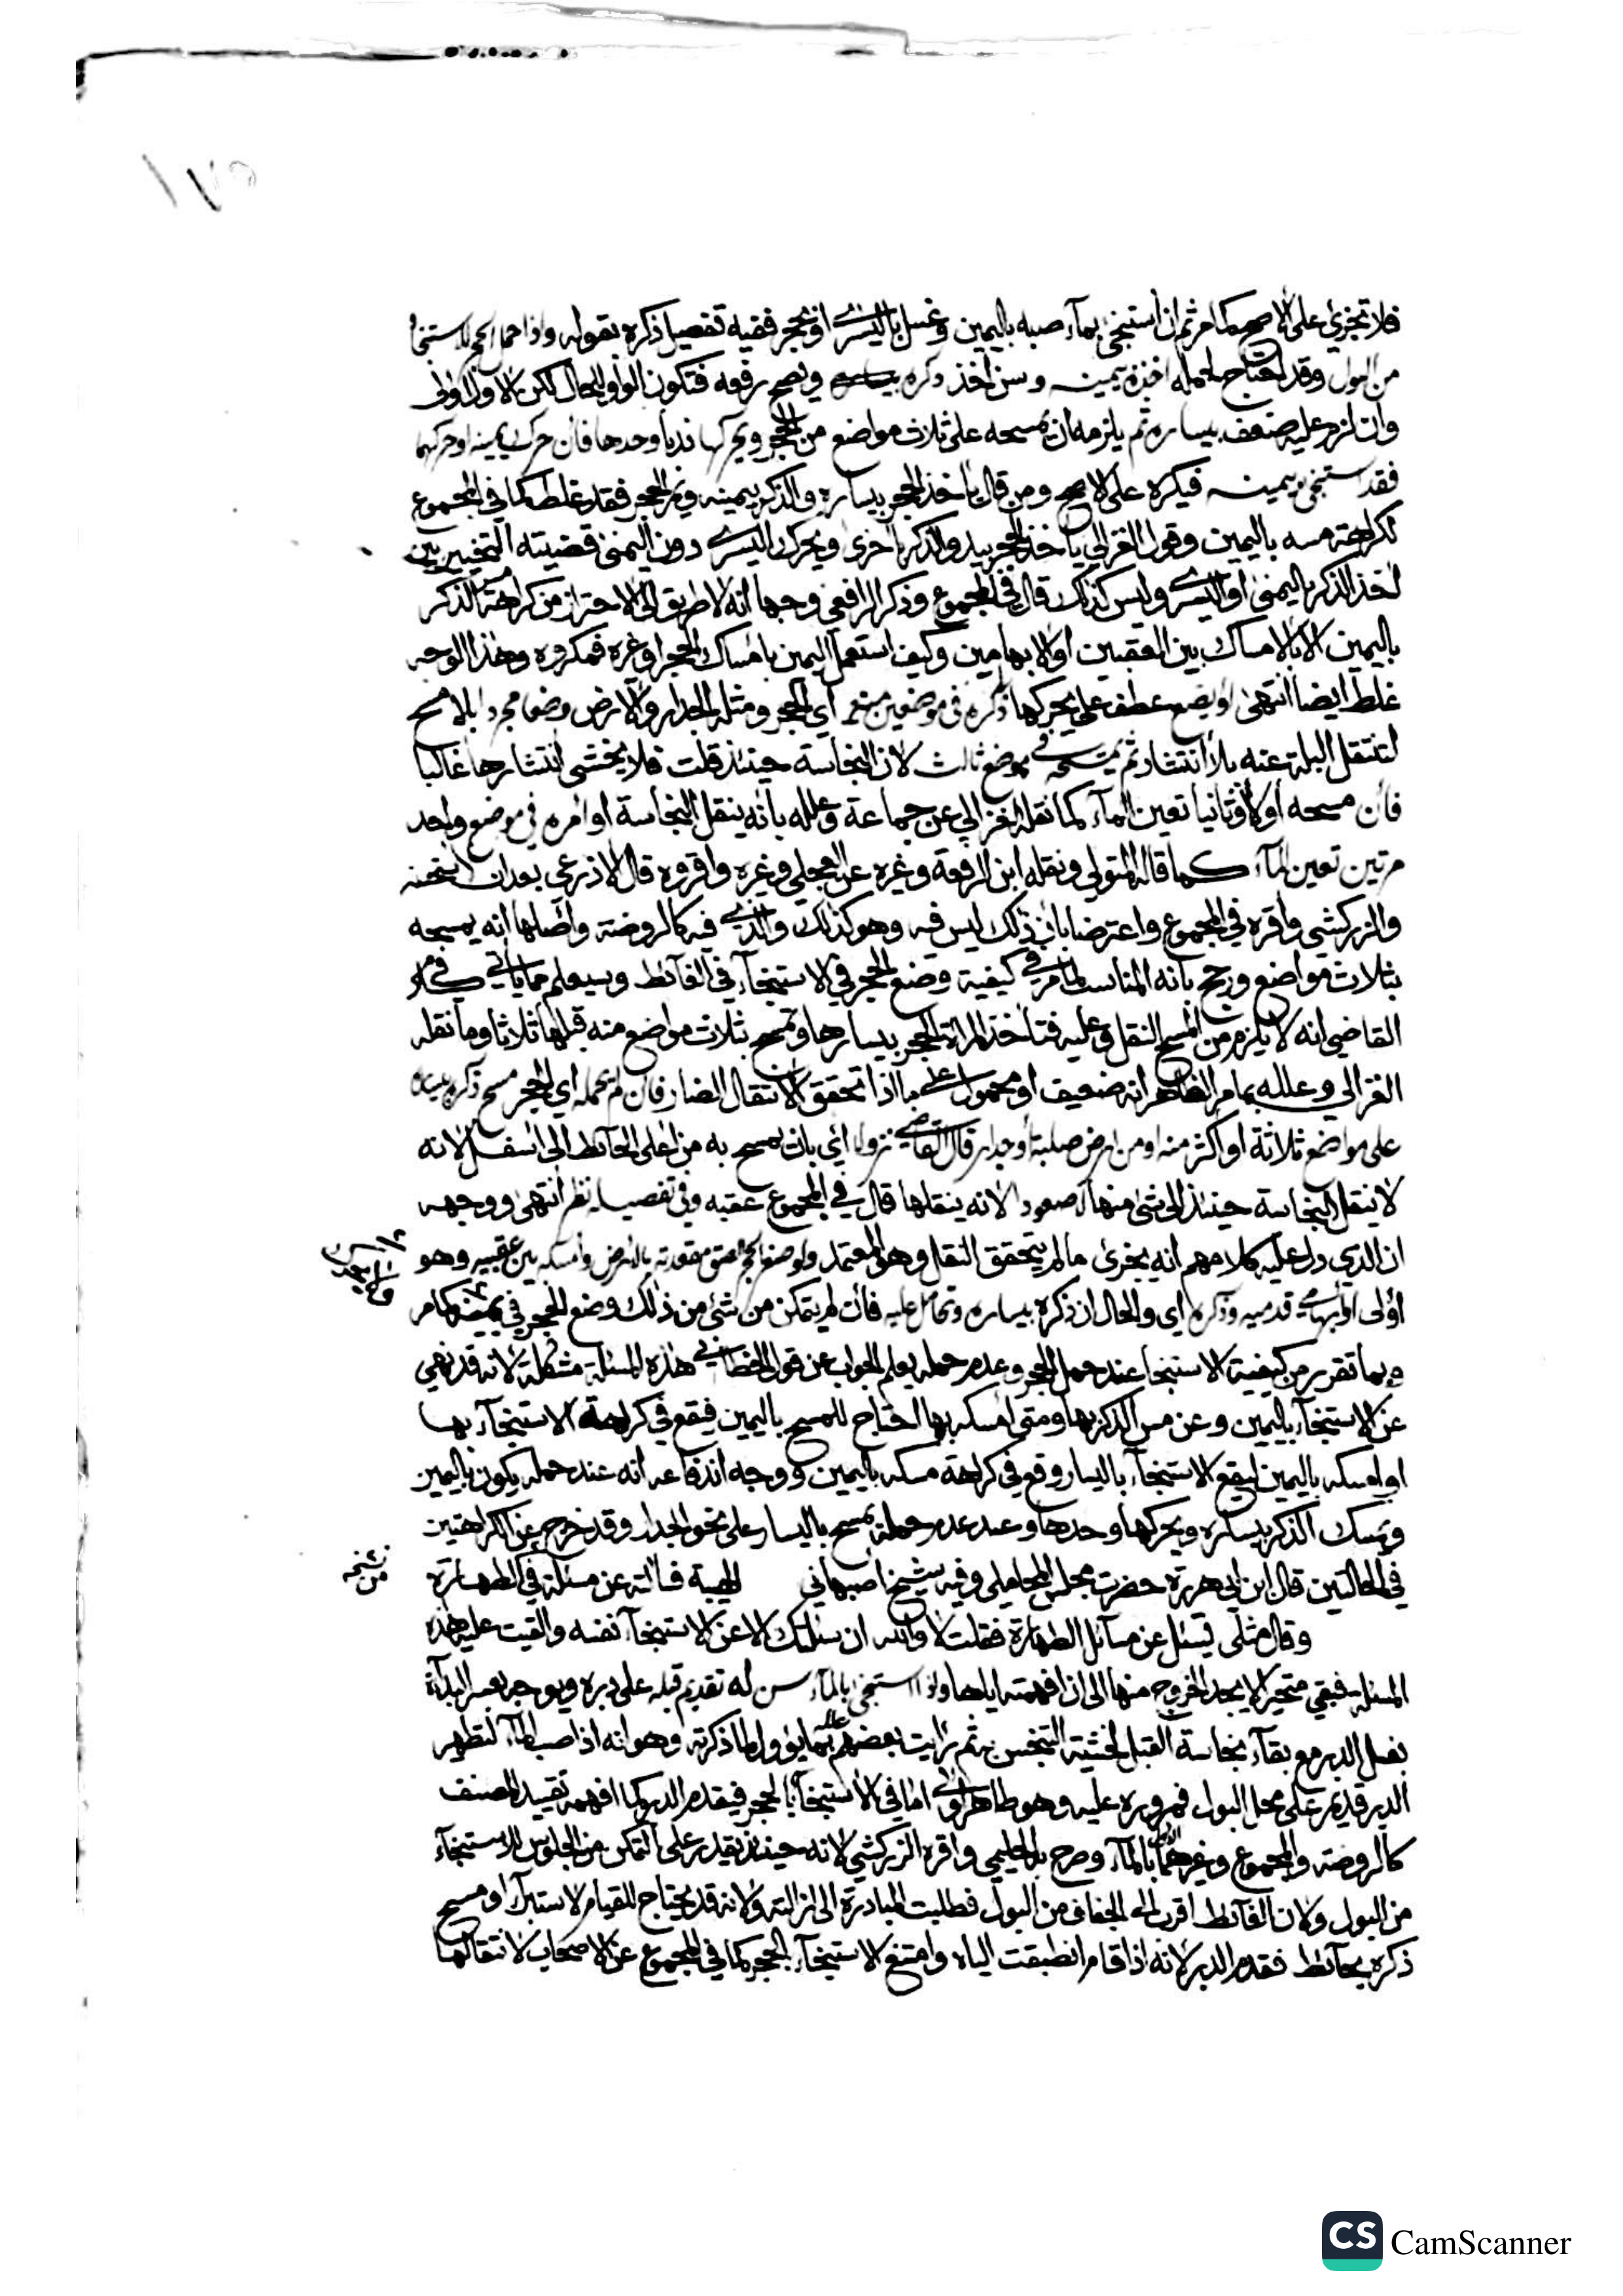 فلا تجزي على الاصح كما مر ثم ان استنجى بماء صبه باليمين وغسل باليسرى او بحجر ففيه تفصيل ذكره بقوله واذا حمل الحجر للاستنجا
من البول وقد احتاج لحمله اخذه بيمينه وسن اخذ ذكره بيساره ويصح رفعه فتكون الواو للحال لكن الاول اولى
وان لزم عليه ضعف بيساره ثم يلزمه ان يمسحه على ثلاث مواضع من الحجر ويحركها ندبا وحدها فان حرك يمينه او حركهما
فقد استنجى بيمينه فيكره على الاصح ومن قال ياخذ الحجر بيساره والذكر بيمينه ويمر الحجر فقد غلط كما في المجموع
لكراهة مسه باليمين وقول الغزالي ياخذ الحجر بيد والذكر باخرى ويحرك اليسرى دون اليمنى قضيته التخيير بين
اخذ الذكر باليمنى او اليسرى وليس كذلك قال في المجموع وذكر الرافعي وجها انه لا طريق الى الاحتراز من كراهة مس الذكر
باليمين الا بالامساك بين العقبين او الابهامين وكيف استعمل اليمين بامساك الحجر او غيره فمكروه وهذا الوجه
غلط ايضا انتهى او يضع عطف على يحركها ذكره في موضعين منه اي الحجر ومثله الجدار والارض وضعا مجردا بلا مسح
لتنتقل البلة عنه بلا انتشار ثم يمسحه في موضع ثالث لان النجاسة حينئذ قلت فلا يخشى انتشارها غالبا
فان مسحه اولا وثانيا تعين الماء كما نقله الغزالي عن جماعة وعلله بانه ينقل النجاسة او امره في موضع واحد
مرتين تعين الماء كما قاله المتولي ونقله ابن الرفعة وغيره عن العجلي وغيره واقروه قال الاذرعي بعد ان استحسنه
والزركشي واقره في المجموع واعترضا بان ذلك ليس فيه وهو كذلك والذي فيه كالروضة واصلها انه يمسحه
بثلاث مواضع ورجح بانه المناسب لما مر في كيفية وضع الحجر في الاستنجاء في الغائط وسيعلم مما ياتي في كلام
القاضي انه لا يلزم من المسح النقل وعليه فتاخذ المراة الحجر بيسارها وتمسح بثلاث مواضع منه قبلها ثلاثا وما نقله
الغزالي وعلله بما مر الظاهر انه ضعيف او محمول على ما اذا تحقق الانتقال الضار فان لم يحمله اي الحجر مسح ذكره بيساره
على مواضع ثلاثة او اكثر منه او من ارض صلبة او جدار قال القاضي نزولا اي بان يمسح به من اعلى الحائط الى اسفل لانه
لا ينقل النجاسة حينئذ الى شئ منها لا صعودا لانه ينقلها قال في المجموع عقبه وفي تفصيله نظر انتهى ووجهه
ان الذي دل عليه كلامهم انه يجزئ ما لم يتحقق النقل وهو المعتمد ولو صغر الحجر الصق مقعدته بالارض وامسكه بين عقبيه وهو
اولى او ابهامي قدميه وذكره اي والحال ان ذكره بيساره وتحامل عليه فان لم يتمكن من شئ من ذلك وضع الحجر في يمينه كما مر
وبما تقرر من كيفية الاستنجا عند حمل الحجر وعدم حمله يعلم الجواب عن قول الخطابي هذه المسئلة مشكلة لانه قد نهي
عن الاستنجاء باليمين وعن مس الذكر بها ومتى امسكه بها احتاج للمسح باليمين فيقع في كراهة الاستنجاء بها
او امسكه باليمين ليقع الاستنجاء باليسار وقع في كراهة مسكه باليمين ووجه اندفاعه انه عند حمله يكون باليمين
ويمسك الذكر بيساره ويحركها وحدها وعند عدم حمله يمسح باليسار على نحو الجدار وقد خرج عن الكراهتين
في الحالتين قال ابن ابي هريرة حضرت مجلس المحاملي وفيه شيخ اصبهاني الهيبة فسالته عن مسئلة في الطهارة
وقال مثلي يسئل عن مسائل الطهارة فقلت لا والله ان سئلتك الا عن الاستنجاء نفسه والقيت عليه هذه
المسئلة فبقي متحيرا لا يجد الخروج منها الى ان افهمته اياها واذا استنجى بالماء سن له تقديم قبله على دبره ويوجه بعسر البداءة
بغسل الدبر مع بقاء نجاسة القبل لخشية التنجس به ثم رايت بعضهم علله بما يؤول لما ذكرته وهو انه اذا صب الماء لتطهير
الدبر قد يمر على محل البول فمروره عليه وهو طاهر اولى اما في الاستنجاء بالحجر فيقدم الدبر كما افهمه تقييد المصنف
كالروضة والمجموع وغيرهما بالماء وصرح به الحليمي واقره الزركشي لانه حينئذ يقدر على التمكن من الجلوس للاستنجاء
من البول ولان الغائط اقرب الى الجفاف من البول فطلبت المبادرة الى ازالته ولانه قد يحتاج للقيام لاستبراء او مسح
ذكره بحائط فقدم الدبر لانه اذا قام انطبقت الياه وامتنع الاستنجاء بالحجر كما في المجموع عن الاصحاب لانتقالها